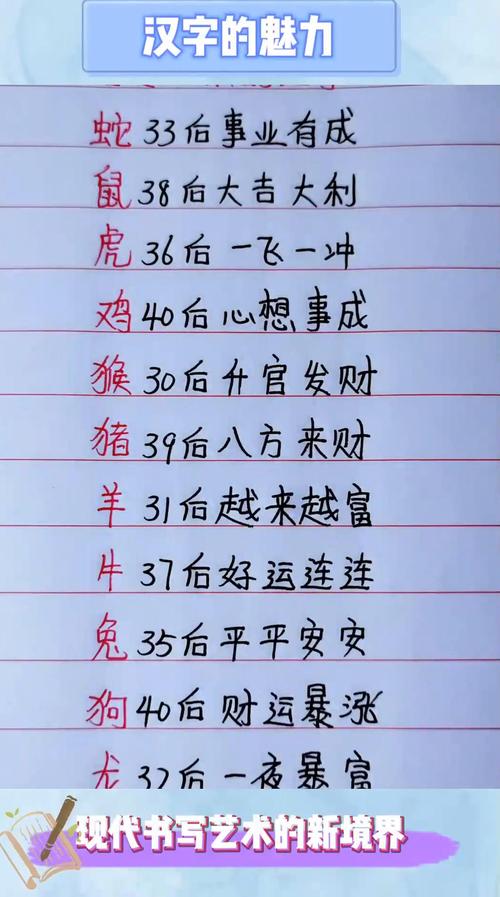 汉字的魅力
蛇33后事业有成
鼠38后大吉大利
虎36后一飞一冲
鸡40后心想事成
猴30后升官发财
猪39后八方来财
羊31后越来越富
牛37后好运连连
兔35后平平安安
狗40后财运暴涨
龙32后一夜暴富
现代书写艺术的新境界